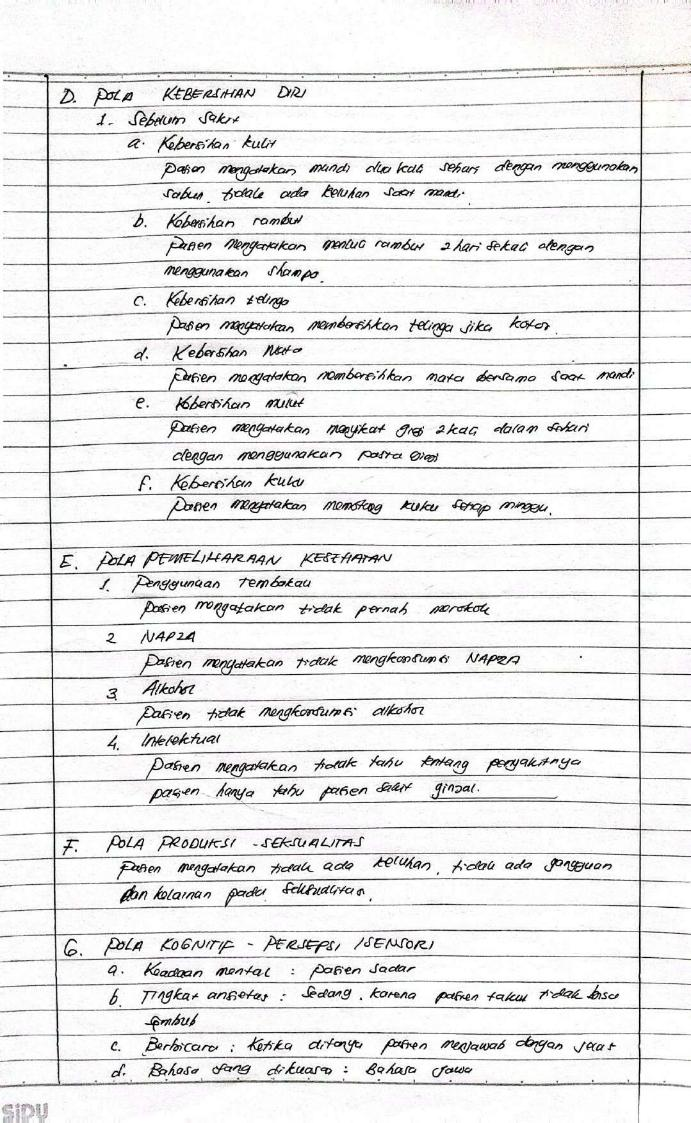 D. POLA KEBERSIHAN DIRI
1. Sebelum Sakit
a. Kebersihan kulit
Pasien mengatakan mandi dua kali sehari dengan menggunakan
sabun, tidak ada keluhan saat mandi.
b. Kebersihan rambut
Pasien mengatakan mencuci rambut 2 hari sekali dengan
menggunakan shampo.
c. Kebersihan telinga
Pasien mengatakan membersihkan telinga jika kotor.
d. Kebersihan Mata
Pasien mengatakan membersihkan mata bersama saat mandi
e. Kebersihan mulut
Pasien mengatakan menyikat gigi 2 kali dalam sehari
dengan menggunakan pasta gigi
f. Kebersihan kuku
Pasien mengatakan memotong kuku setiap minggu.
E. POLA PEMELIHARAAN KESEHATAN
1. Penggunaan tembakau
Pasien mengatakan tidak pernah merokok
2 NAPZA
Pasien mengatakan tidak mengkonsumsi NAPZA
3. Alkohol
Pasien tidak mengkonsumsi alkohol
4. Intelektual
Pasien mengatakan tidak tahu tentang penyakitnya
pasien hanya tahu pasien sakit ginjal.
F. POLA PRODUKSI - SEKSUALITAS
Pasien mengatakan tidak ada keluhan, tidak ada gangguan
dan kelainan pada seksualitas.
G. POLA KOGNITIF - PERSEPSI / SENSORI
a. Keadaan mental : pasien sadar
b. Tingkat ansietas : Sedang, karena pasien takut tidak bisa
sembuh
c. Berbicara : Ketika ditanya pasien menjawab dengan jelas
d. Bahasa yang dikuasai : Bahasa Jawa
SiDU